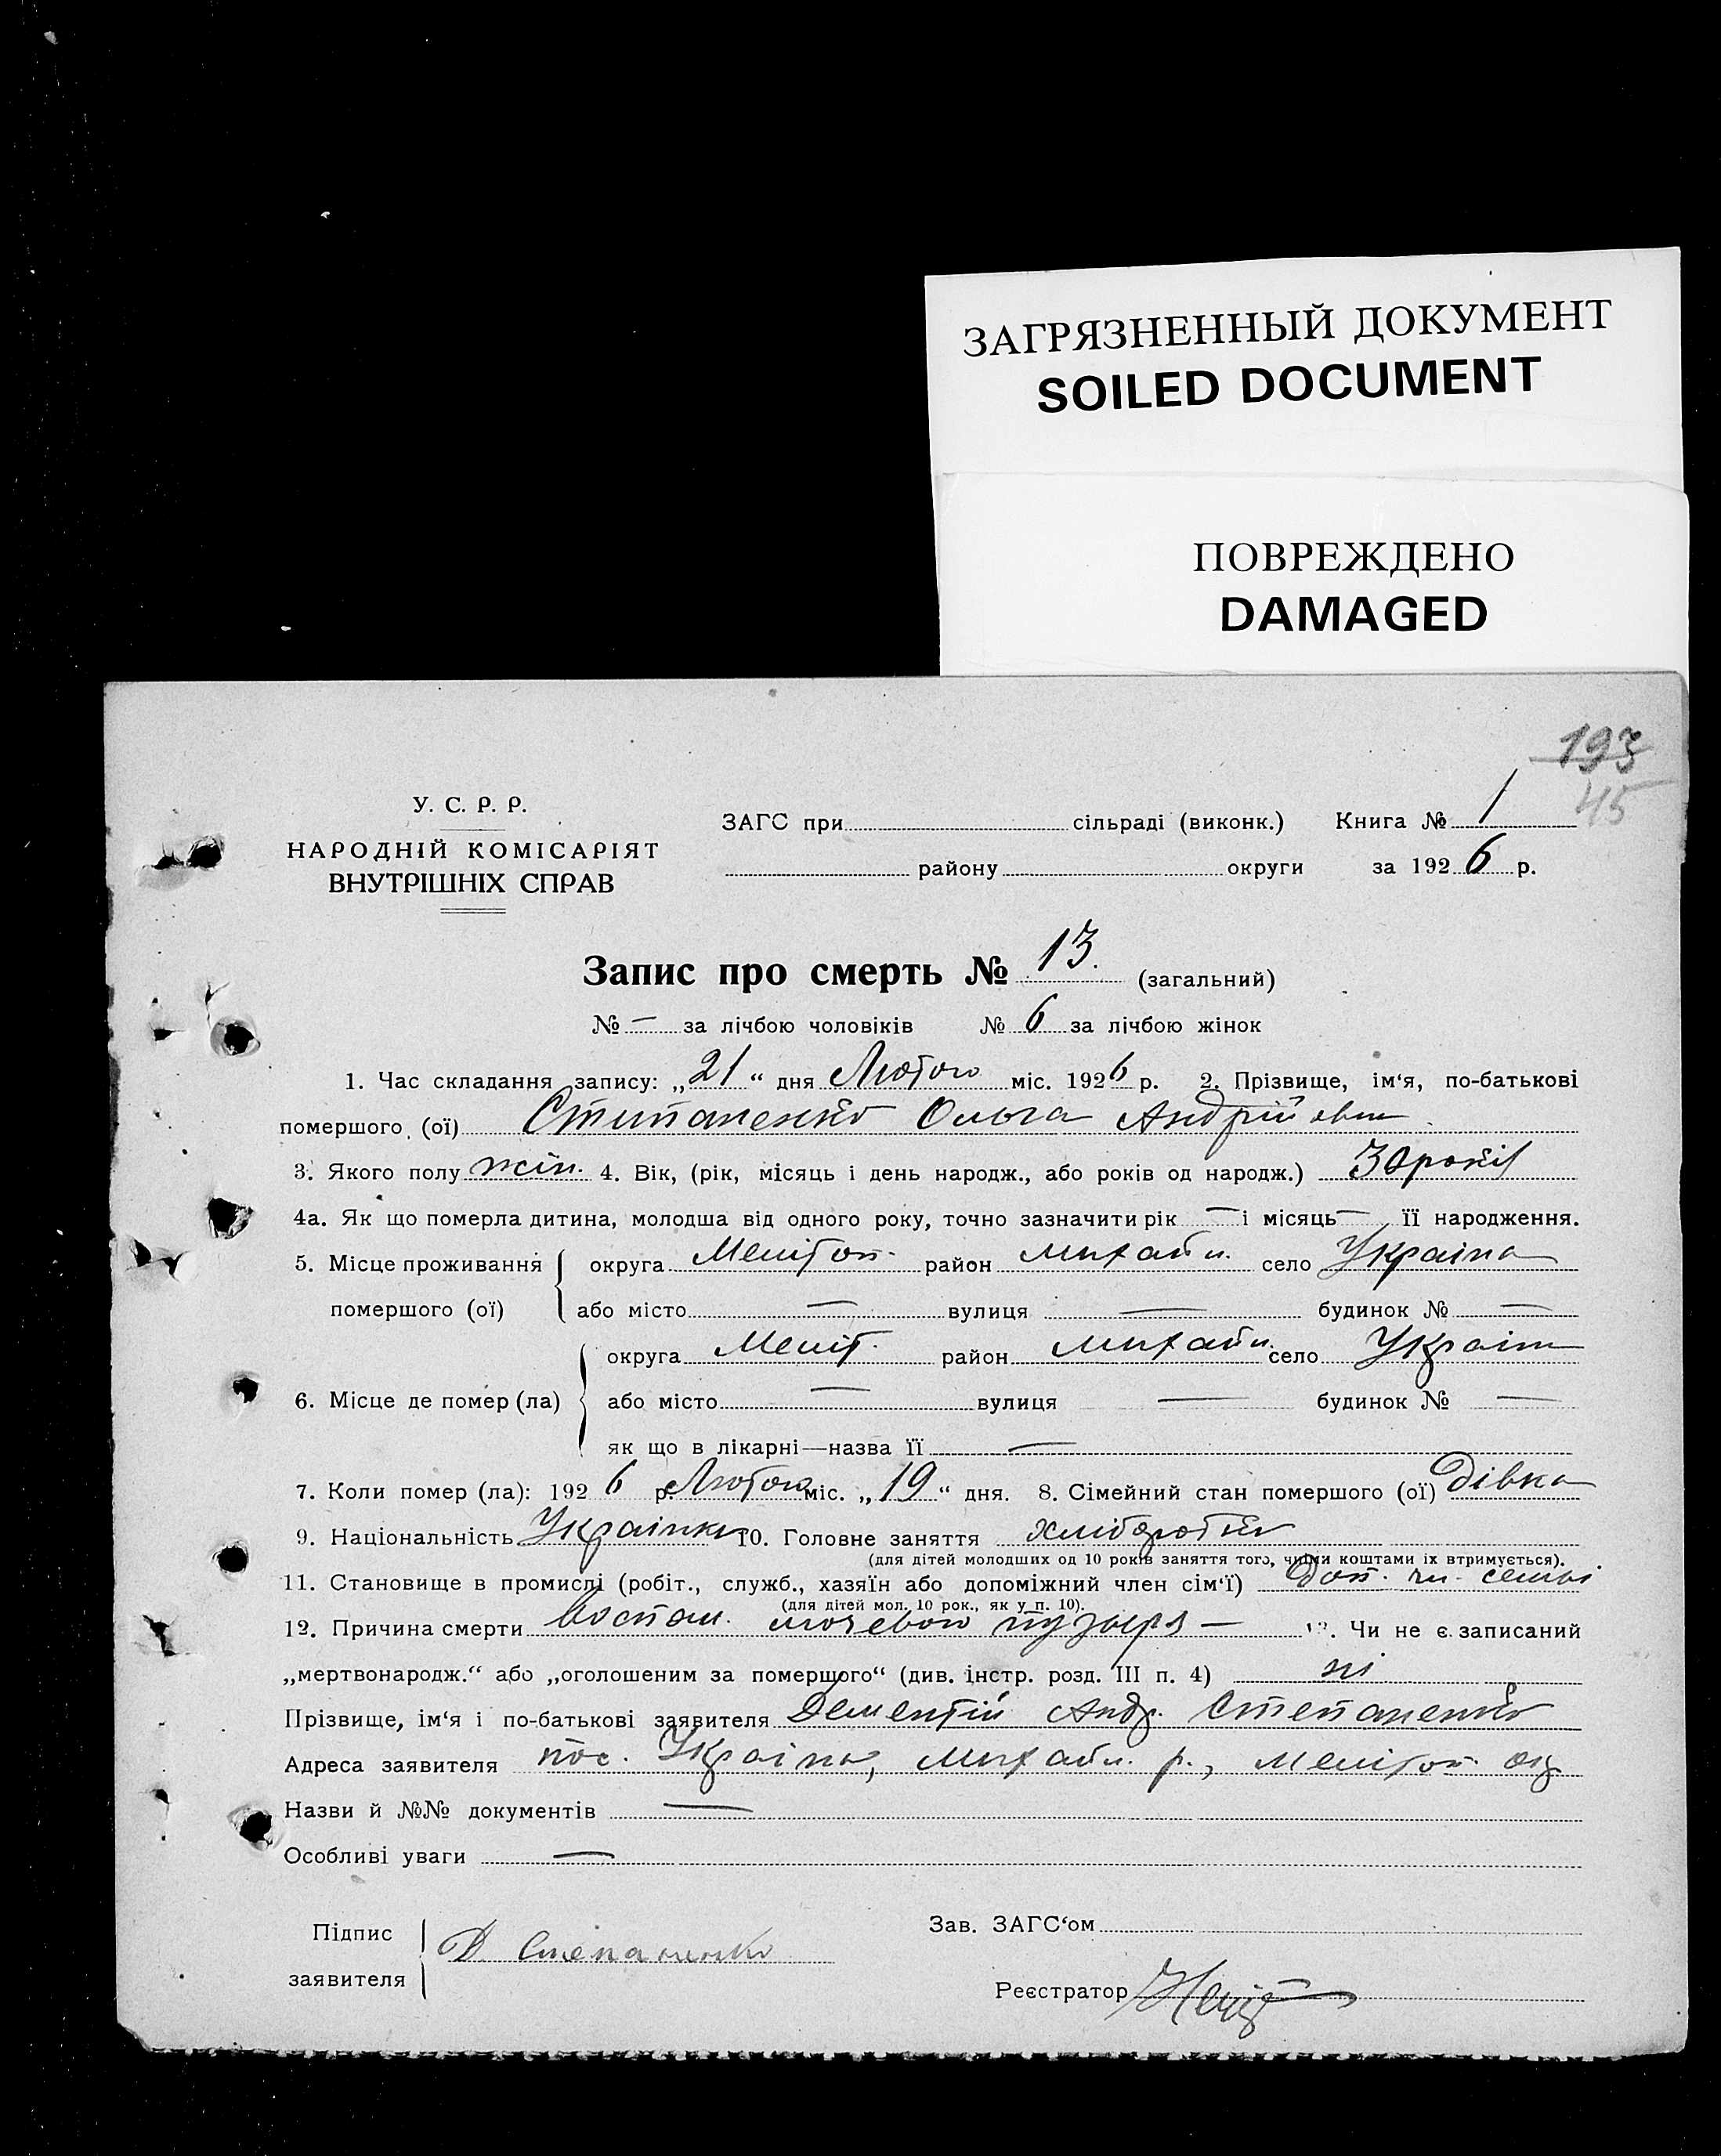 ЗАГРЯЗНЕННЫЙ ДОКУМЕНТ
SOILED DOCUMENT
ПОВРЕЖДЕНО
DAMAGED
193
45
У. С. Р. Р.
НАРОДНІЙ КОМІСАРІЯТ
ВНУТРІШНІХ СПРАВ
ЗАГС при сільраді (виконк.) Книга № 1
району округи за 1926 р.
Запис про смерть № 13. (загальний)
№ — за лічбою чоловіків № 6 за лічбою жінок
1. Час складання запису: „21“ дня Лютого міс. 1926 р. 2. Прізвище, ім‘я, по-батькові
помершого (ої) Степаненко Ольга Андрійовна
3. Якого полу жін. 4. Вік, (рік, місяць і день народж., або років од народж.) 30 років
4а. Як що померла дитина, молодша від одного року, точно зазначити рік — і місяць — її народження.
5. Місце проживання помершого (ої)
округа Мелітоп. район Михайл. село Україна
або місто — вулиця — будинок № —
6. Місце де помер (ла)
округа Меліт. район Михайл. село Україна
або місто — вулиця — будинок № —
як що в лікарні—назва її —
7. Коли помер (ла): 1926 р. Лютого міс. „19“ дня. 8. Сімейний стан помершого (ої) Дівка
9. Національність Українка 10. Головне заняття хлібороб
(для дітей молодших од 10 років заняття того, чиїми коштами їх втримується).
11. Становище в промислі (робіт., служб., хазяїн або допоміжний член сім‘ї) Доп. чл. семьі
(для дітей мол. 10 рок., як у п. 10).
12. Причина смерти воспал. мочевого пузыря — 13. Чи не є записаний
„мертвонародж.“ або „оголошеним за помершого“ (див. інстр. розд. III п. 4) ні
Прізвище, ім‘я і по-батькові заявителя Дементій Андр. Степаненко
Адреса заявителя пос. Україна, Михайл. р., Мелітоп. окр.
Назви й №№ документів —
Особливі уваги —
Підпис заявителя Д Степаненко
Зав. ЗАГС‘ом
Реєстратор